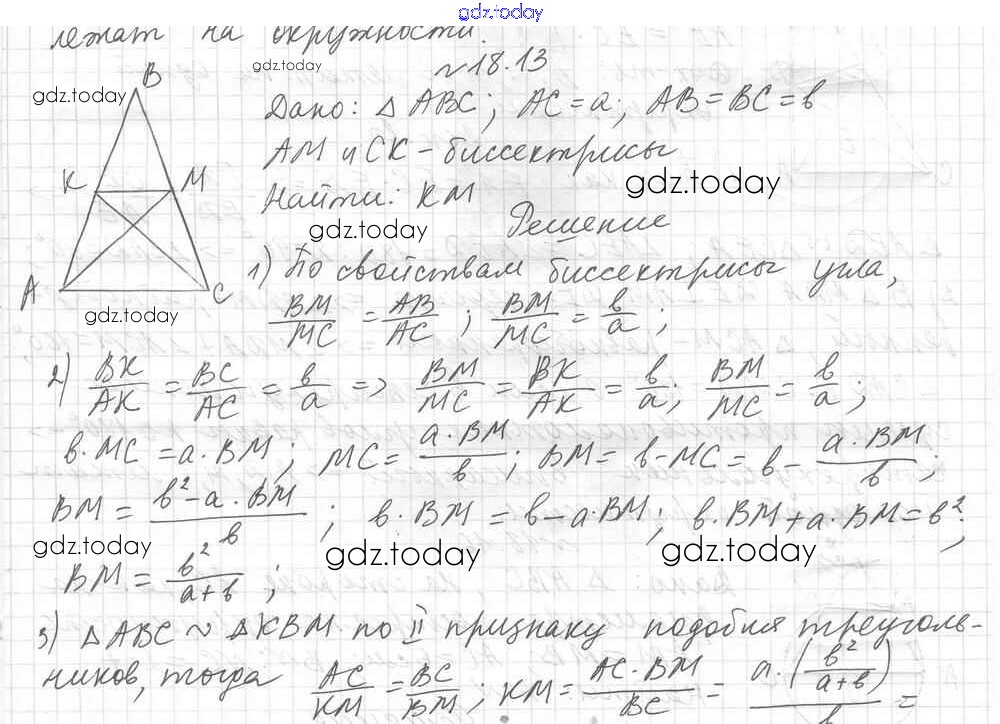 gdz.today
лежат на окружности.
gdz.today
№18.13
B
gdz.today
Дано: △ ABC; AC = a; AB = BC = b
AM и CK - биссектрисы
K M
gdz.today
Найти: KM
gdz.today
Решение
A C
1) По свойствам биссектрисы угла,
gdz.today
BM/MC = AB/AC ; BM/MC = b/a ;
2) BK/AK = BC/AC = b/a => BM/MC = BK/AK = b/a; BM/MC = b/a ;
b·MC = a·BM; MC = a·BM/b ; BM = b-MC = b - a·BM/b ;
BM = b²-a·BM/b ; b·BM = b-a·BM; b·BM+a·BM = b²;
gdz.today gdz.today gdz.today
BM = b²/a+b ;
3) △ABC ~ △KBM по II признаку подобия треуголь-
ников, тогда AC/KM = BC/BM ; KM = AC·BM/BC = a·(b²/a+b)/b =